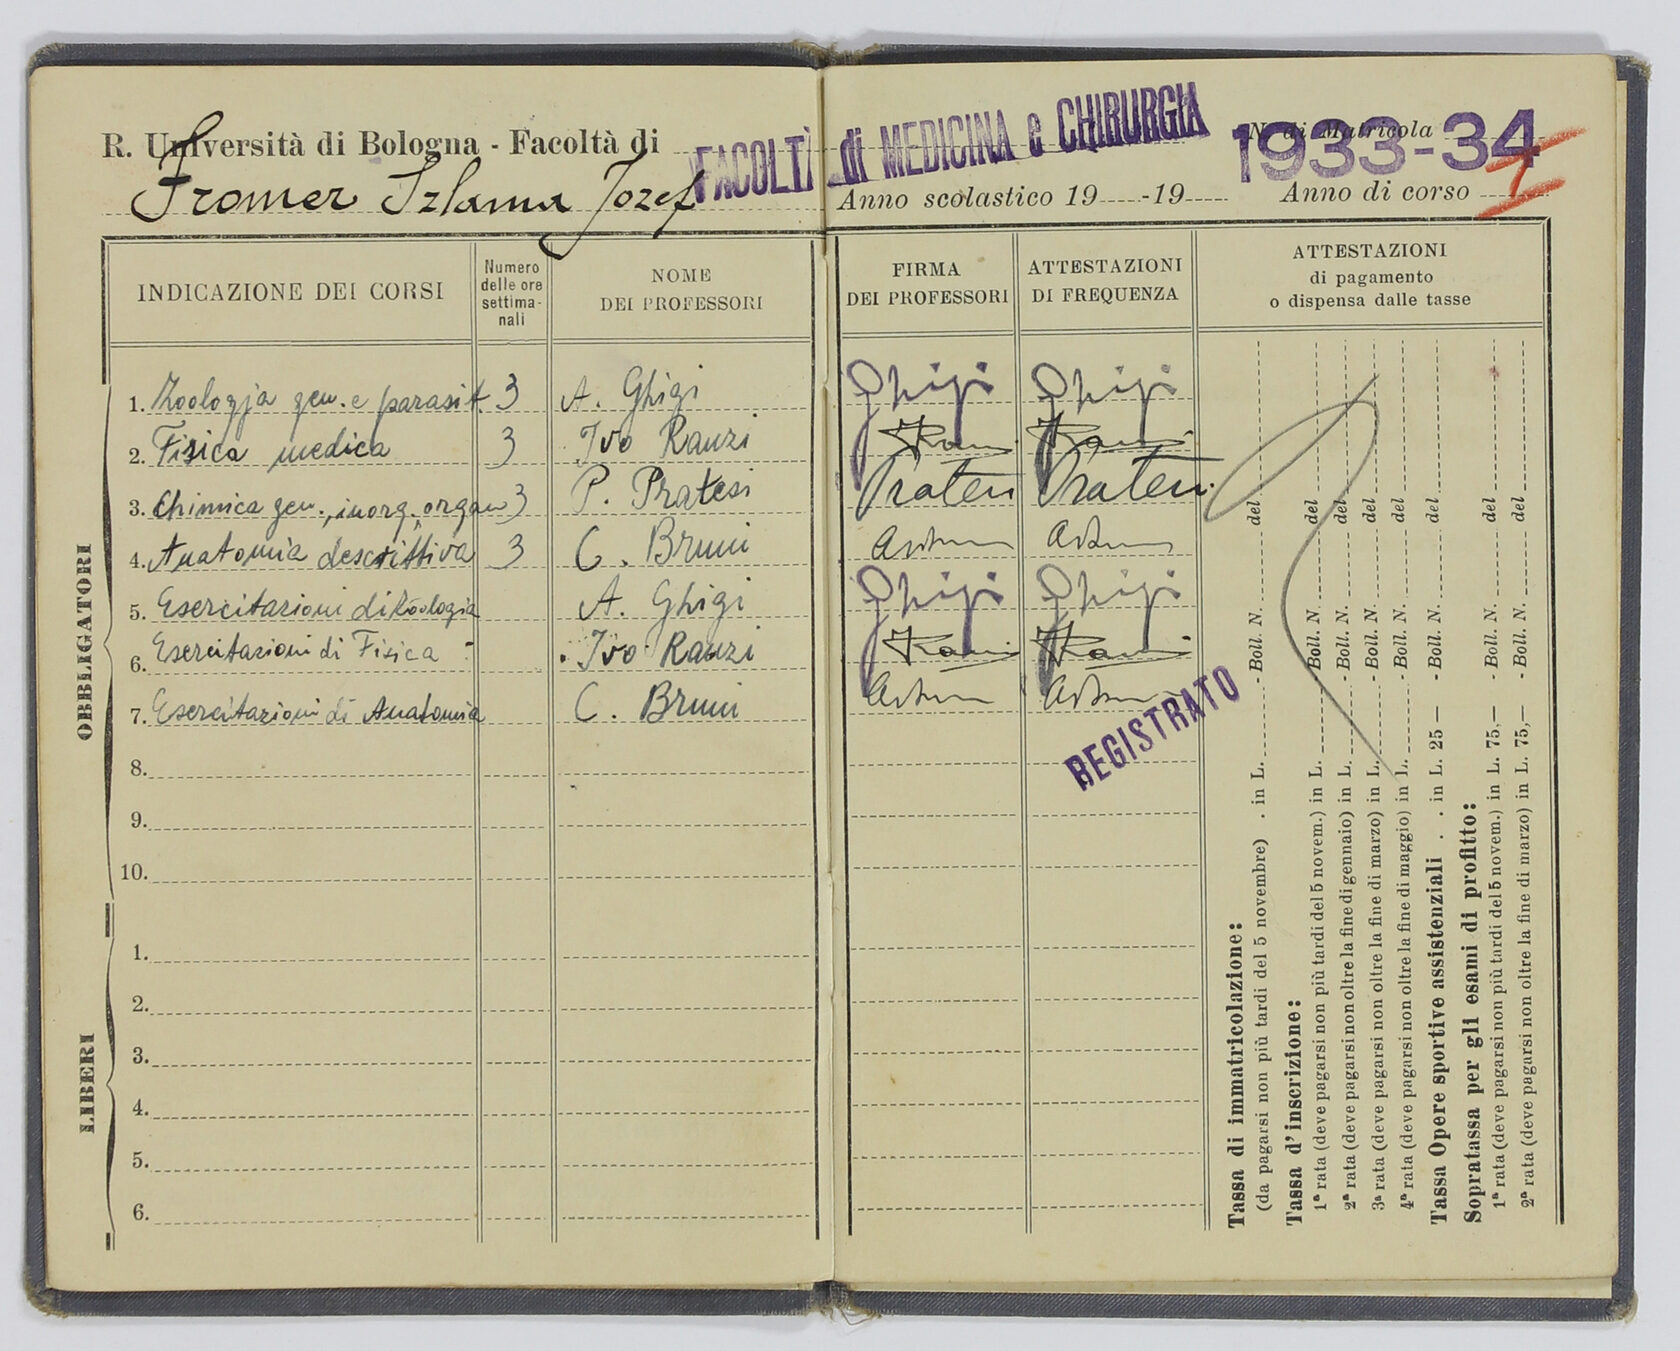 R. Università di Bologna - Facoltà di FACOLTÀ di MEDICINA e CHIRURGIA
N. di Matricola
1933-34
Fromer Szlama Jozef
Anno scolastico 19 -19 Anno di corso I
INDICAZIONE DEI CORSI
Numero
delle ore
settima-
nali
NOME
DEI PROFESSORI
FIRMA
DEI PROFESSORI
ATTESTAZIONI
DI FREQUENZA
ATTESTAZIONI
di pagamento
o dispensa dalle tasse
OBBLIGATORI
1. Zoologja gen. e parasit. 3 A. Ghigi Ghigi Ghigi
2. Fisica medica 3 Ivo Ranzi Ranzi Ranzi
3. Chimica gen., inorg., organ 3 P. Pratesi Pratesi Pratesi
4. Anatomia descrittiva 3 C. Bruni
5. Esercitazioni di Zoologia A. Ghigi Ghigi Ghigi
6. Esercitazioni di Fisica Ivo Ranzi Ranzi Ranzi
7. Esercitazioni di Anatomia C. Bruni
REGISTRATO
8.
9.
10.
LIBERI
1.
2.
3.
4.
5.
6.
Tassa di immatricolazione:
(da pagarsi non più tardi del 5 novembre) . in L. - Boll. N. del
Tassa d'inscrizione:
1ª rata (deve pagarsi non più tardi del 5 novem.) in L. - Boll. N. del
2ª rata (deve pagarsi non oltre la fine di gennaio) in L. - Boll. N. del
3ª rata (deve pagarsi non oltre la fine di marzo) in L. - Boll. N. del
4ª rata (deve pagarsi non oltre la fine di maggio) in L. - Boll. N. del
Tassa Opere sportive assistenziali . . in L. 25 — - Boll. N. del
Sopratassa per gli esami di profitto:
1ª rata (deve pagarsi non più tardi del 5 novem.) in L. 75,— - Boll. N. del
2ª rata (deve pagarsi non oltre la fine di marzo) in L. 75,— - Boll. N. del